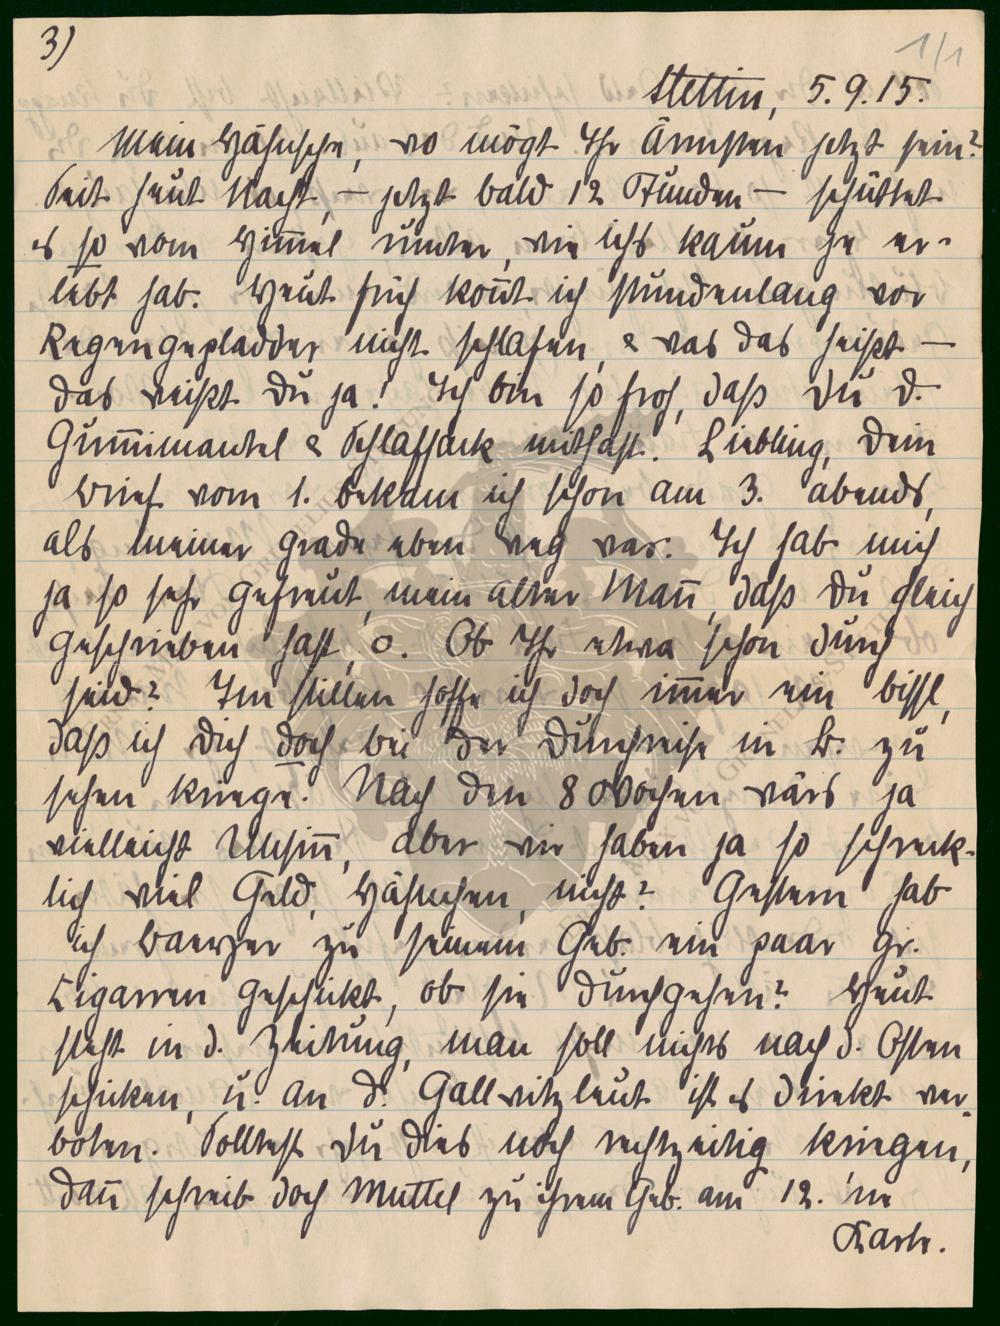 3)
1/1
Stettin, 5.9.15.
Mein Hähnsche, wo mögt Ihr Ärmsten jetzt sein?
Seit heut Nacht, – jetzt bald 12 Stunden – schüttet
es so vom Himmel runter, wie ichs kaum je er-
lebt hab. Heut früh kon̄t ich stundenlang vor
Regengepladder nicht schlafen, & was das heißt –
das weißt Du ja! Ich bin so froh, daß Du d.
Gum̄imantel & Schlafsack mithast. Liebling, Dein
Brief vom 1. bekam ich schon am 3. abends,
als meiner grade eben weg war. Ich hab mich
ja so sehr gefreut, mein alter Man̄, daß Du gleich
geschrieben hast, o. Ob Ihr etwa schon durch
seid? Im stillen hoffe ich doch im̄er ein bissl,
daß ich Dich doch bei der Durchreise in B. zu
sehen kriege! Nach den 8 Wochen wärs ja
vielleicht Unsin̄, aber wir haben ja so schreck-
lich viel Geld, Hähnchen, nicht? Gestern hab
ich Baerzer zu seinem Geb. ein paar gr.
Cigarren geschickt, ob sie durchgehen? Heut
steht in d. Zeitung, man soll nichts nach d. Osten
schicken, u. an d. Gallwitzleut ist es direkt ver-
boten. Solltest Du dies noch rechtzeitig kriegen,
dan̄ schreib doch Muttel zu ihrem Geb. am 12. 'ne
Karte.